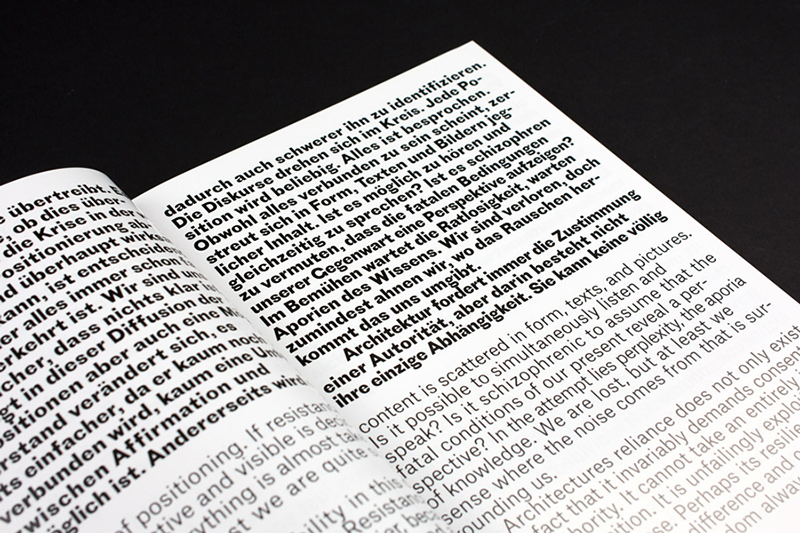 e übertreibt. E
, ob dies über
die Krise in der
ositionierung ab
d überhaupt wir
kann, ist entscheid
er alles immer schon
rkehrt ist. Wir sind un
cher, dass nichts klar
gt in dieser Diffusion der
sitionen aber auch eine Mo
rstand verändert sich, es
ts einfacher, da er kaum noch
verbunden wird, kaum eine Um
zwischen Affirmation und
äglich ist. Andererseits wird
of positioning. If resistanc
ctive and visible is dec
rything is almost ta
st we are quite
bility in this
Resistanc
iar, beca
dadurch auch schwerer ihn zu identifizieren.
Die Diskurse drehen sich im Kreis. Jede Po-
sition wird beliebig. Alles ist besprochen.
Obwohl alles verbunden zu sein scheint, zer-
streut sich in Form, Texten und Bildern jeg-
licher Inhalt. Ist es möglich zu hören und
gleichzeitig zu sprechen? Ist es schizophren
zu vermuten, dass die fatalen Bedingungen
unserer Gegenwart eine Perspektive aufzeigen?
Im Bemühen wartet die Ratlosigkeit, warten
Aporien des Wissens. Wir sind verloren, doch
zumindest ahnen wir, wo das Rauschen her-
kommt das uns umgibt.
Architektur fordert immer die Zustimmung
einer Autorität, aber darin besteht nicht
ihre einzige Abhängigkeit. Sie kann keine völlig
content is scattered in form, texts, and pictures.
Is it possible to simultaneously listen and
speak? Is it schizophrenic to assume that the
fatal conditions of our present reveal a per-
spective? In the attempt lies perplexity, the aporia
of knowledge. We are lost, but at least we
sense where the noise comes from that is sur-
rounding us.
Architectures reliance does not only exist
fact that it invariably demands consent
hority. It cannot take an entirely
ition. It is unfailingly exploi
se. Perhaps its resilie
difference and o
dom alway